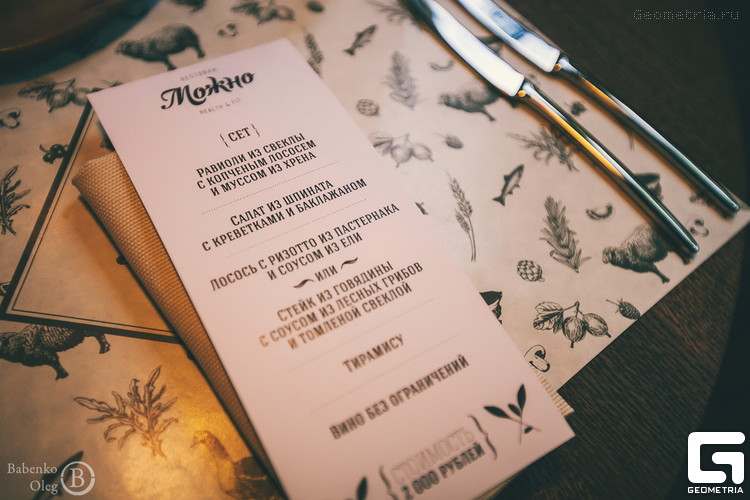 Geometria.ru
РЕСТОРАН
Можно
HEALTH & FIT
{ СЕТ }
РАВИОЛИ ИЗ СВЕКЛЫ
С КОПЧЕНЫМ ЛОСОСЕМ
И МУССОМ ИЗ ХРЕНА
САЛАТ ИЗ ШПИНАТА
С КРЕВЕТКАМИ И БАКЛАЖАНОМ
ЛОСОСЬ С РИЗОТТО ИЗ ПАСТЕРНАКА
И СОУСОМ ИЗ ЕЛИ
ИЛИ
СТЕЙК ИЗ ГОВЯДИНЫ
С СОУСОМ ИЗ ЛЕСНЫХ ГРИБОВ
И ТОМЛЕНОЙ СВЕКЛОЙ
ТИРАМИСУ
ВИНО БЕЗ ОГРАНИЧЕНИЙ
{ СТОИМОСТЬ
2 000 РУБЛЕЙ }
Babenko
Oleg B
G
GEOMETRIA